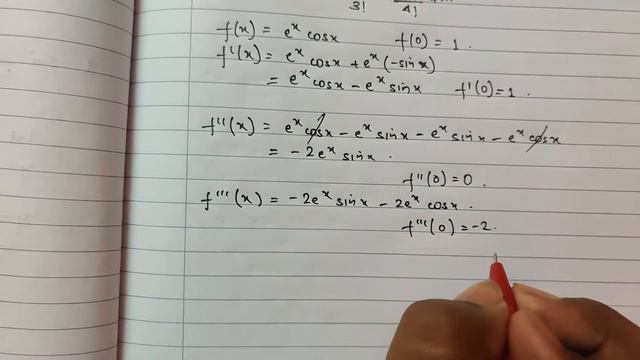 3! 4!
f(x) = eˣ cosx f(0) = 1.
f'(x) = eˣ cosx + eˣ(-sinx)
= eˣ cosx - eˣ sinx f'(0) = 1.
f''(x) = eˣ cosx - eˣ sinx - eˣ sinx - eˣ cosx
= -2eˣ sinx.
f''(0) = 0.
f'''(x) = -2eˣ sinx - 2eˣ cosx.
f'''(0) = -2.